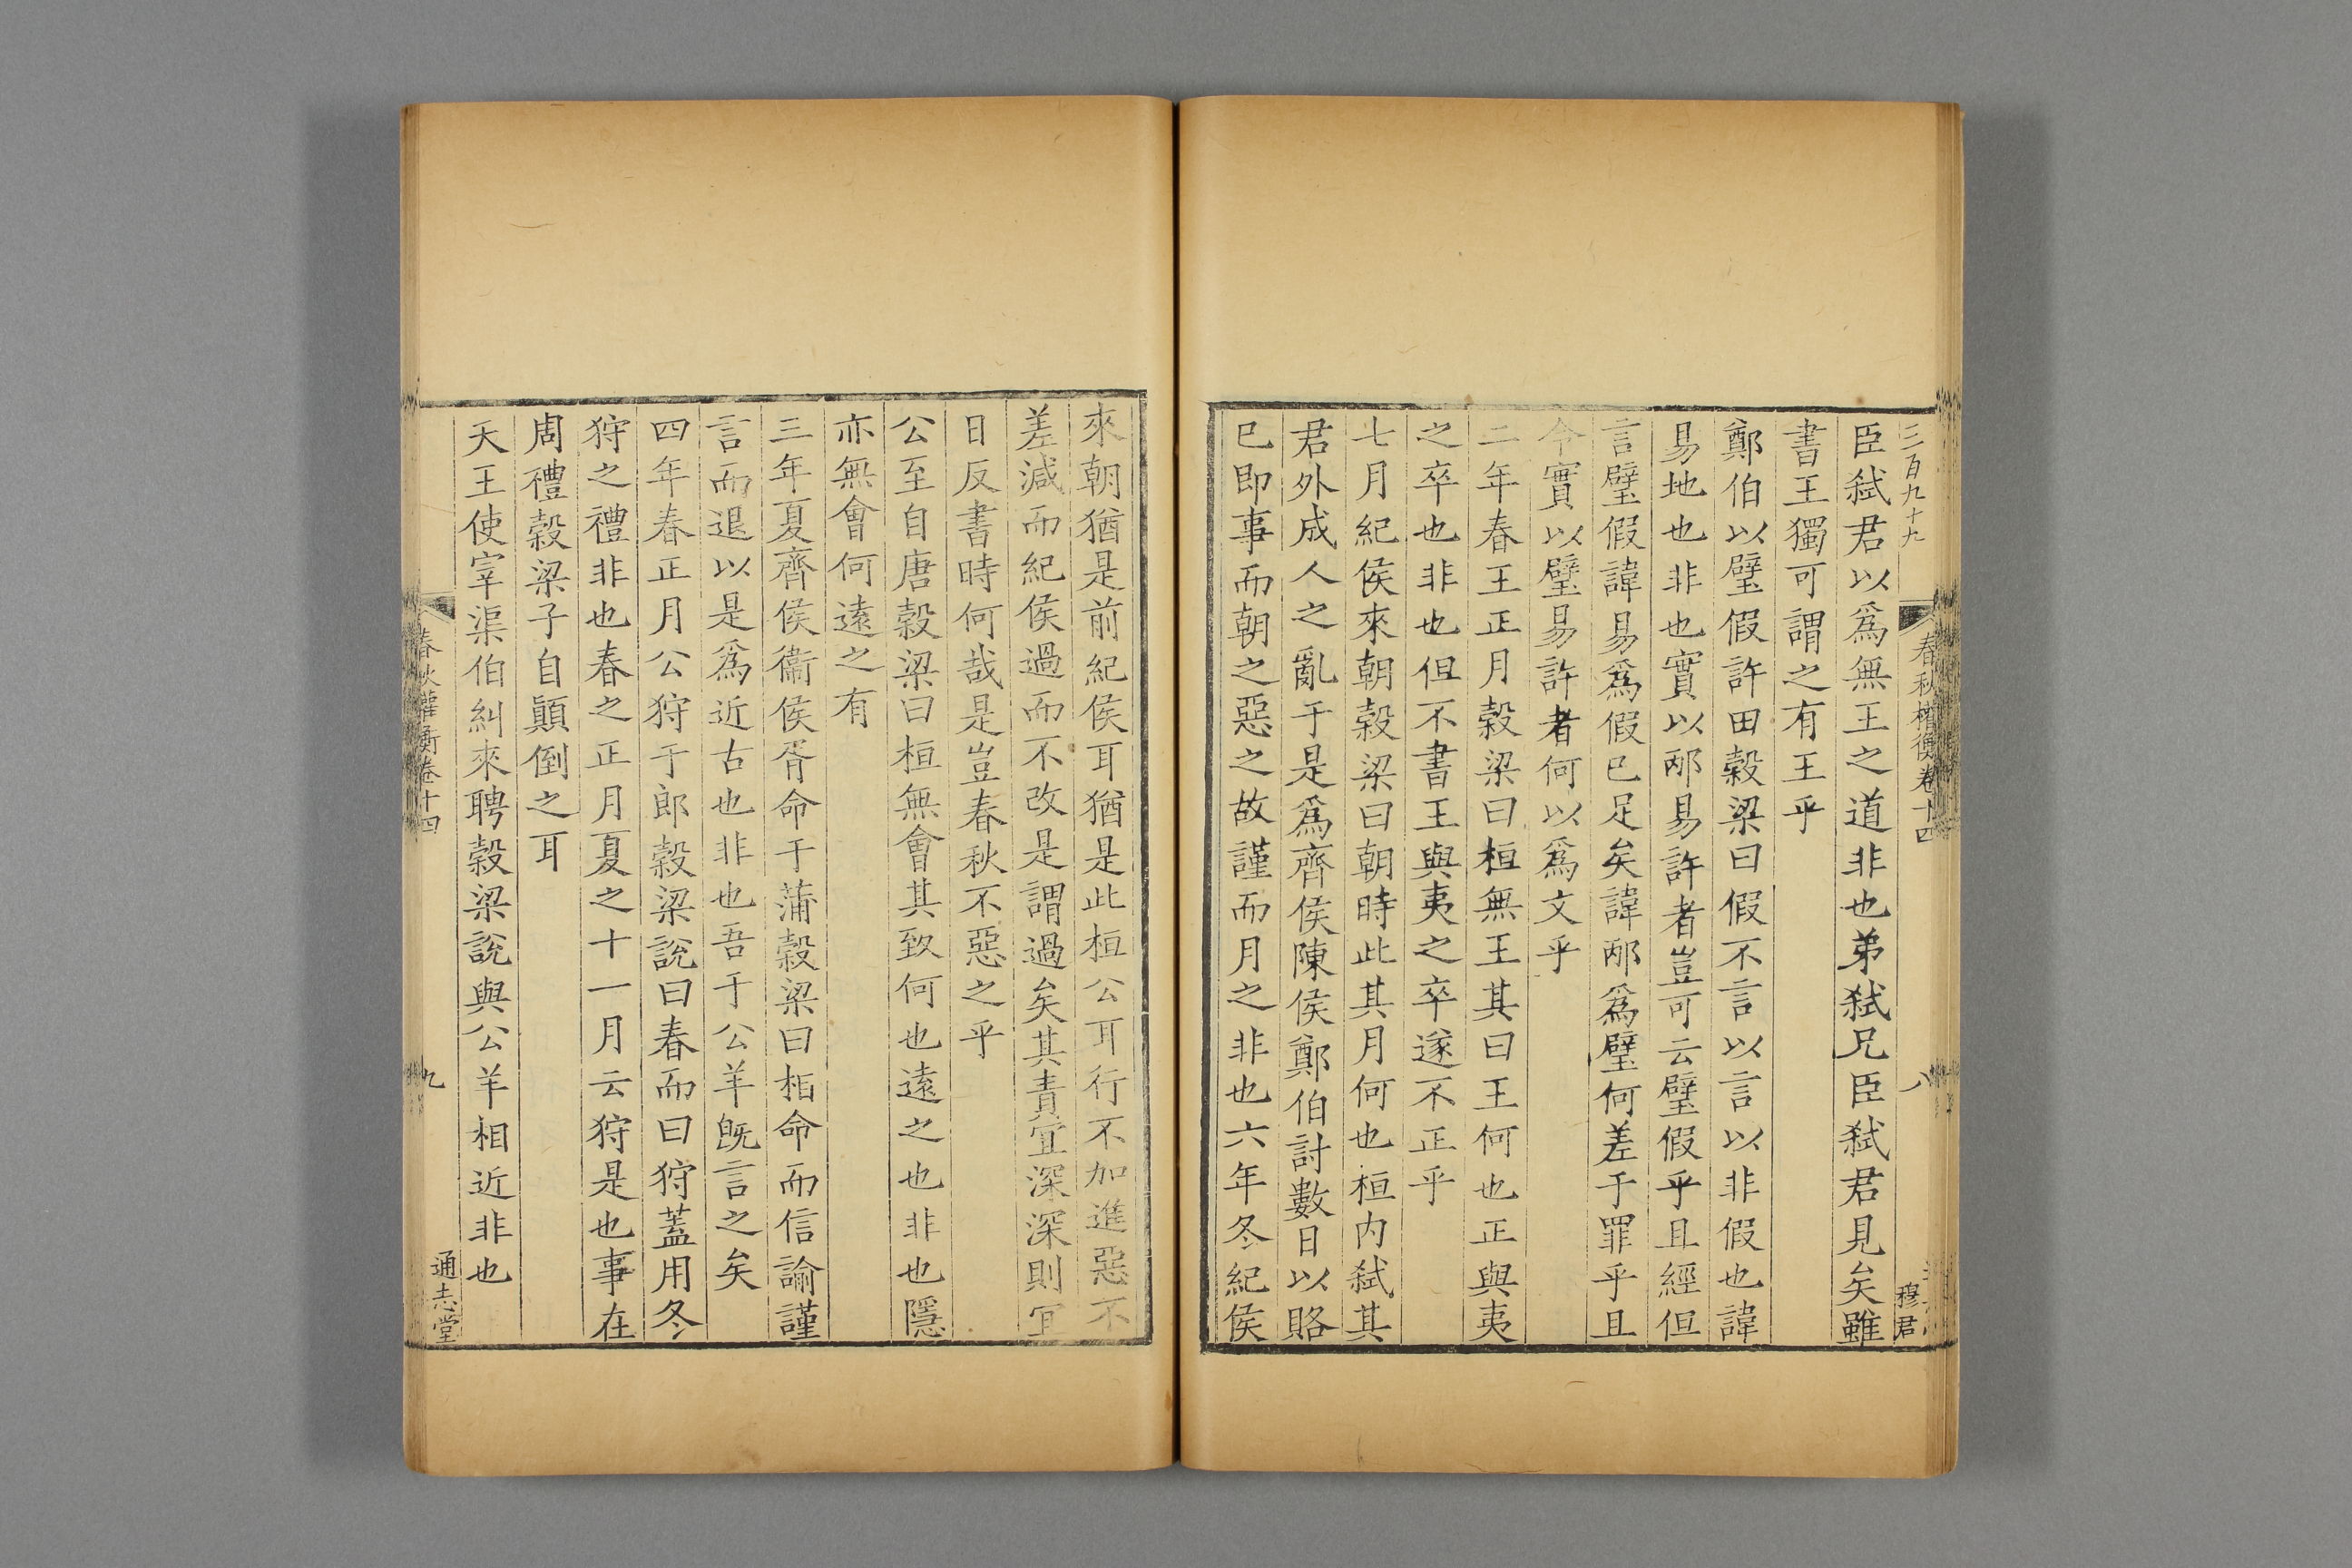 三百九十九
春秋權衡卷十四
八
穆君
臣弑君以爲無王之道非也弟弑兄臣弑君見矣雖
書王獨可謂之有王乎
鄭伯以璧假許田穀梁曰假不言以言以非假也諱
易地也非也實以邴易許者豈可云璧假乎且經但
言璧假諱易爲假已足矣諱邴爲璧何差于罪乎且
令實以璧易許者何以爲文乎
二年春王正月穀梁曰桓無王其曰王何也正與夷
之卒也非也但不書王與夷之卒遂不正乎
七月紀侯來朝穀梁曰朝時此其月何也桓内弑其
君外成人之亂于是爲齊侯陳侯鄭伯討數日以賂
已即事而朝之惡之故謹而月之非也六年冬紀侯
來朝猶是前紀侯耳猶是此桓公耳行不加進惡不
差減而紀侯過而不改是謂過矣其責宜深深則宜
日反書時何哉是豈春秋不惡之乎
公至自唐穀梁曰桓無會其致何也遠之也非也隱
亦無會何遠之有
三年夏齊侯衞侯胥命于蒲穀梁曰相命而信諭謹
言而退以是爲近古也非也吾于公羊既言之矣
四年春正月公狩于郎穀梁說曰春而曰狩蓋用冬
狩之禮非也春之正月夏之十一月云狩是也事在
周禮穀梁子自顚倒之耳
天王使宰渠伯糾來聘穀梁說與公羊相近非也
春秋權衡卷十四
九
通志堂